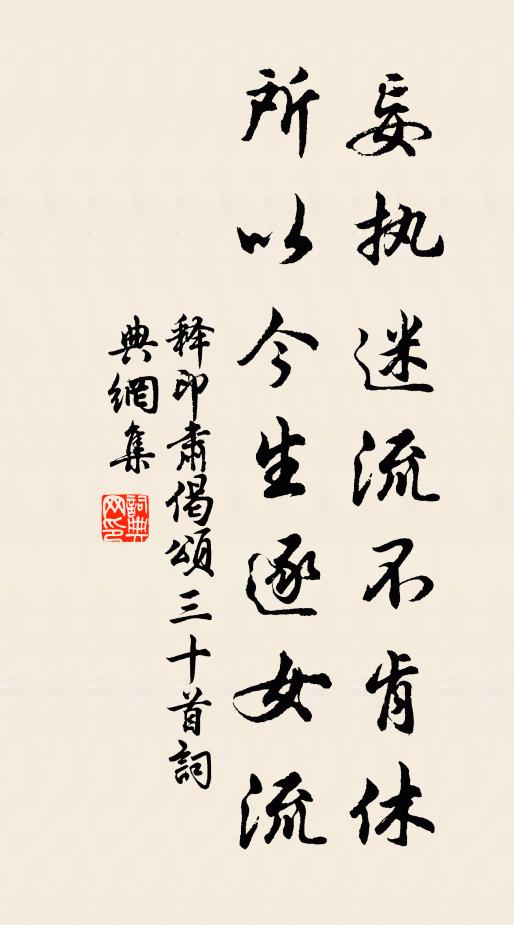 妄执迷流不肯休
所以今生逐女流
释印肃偈頌三十首詞
典網集
詞典网印